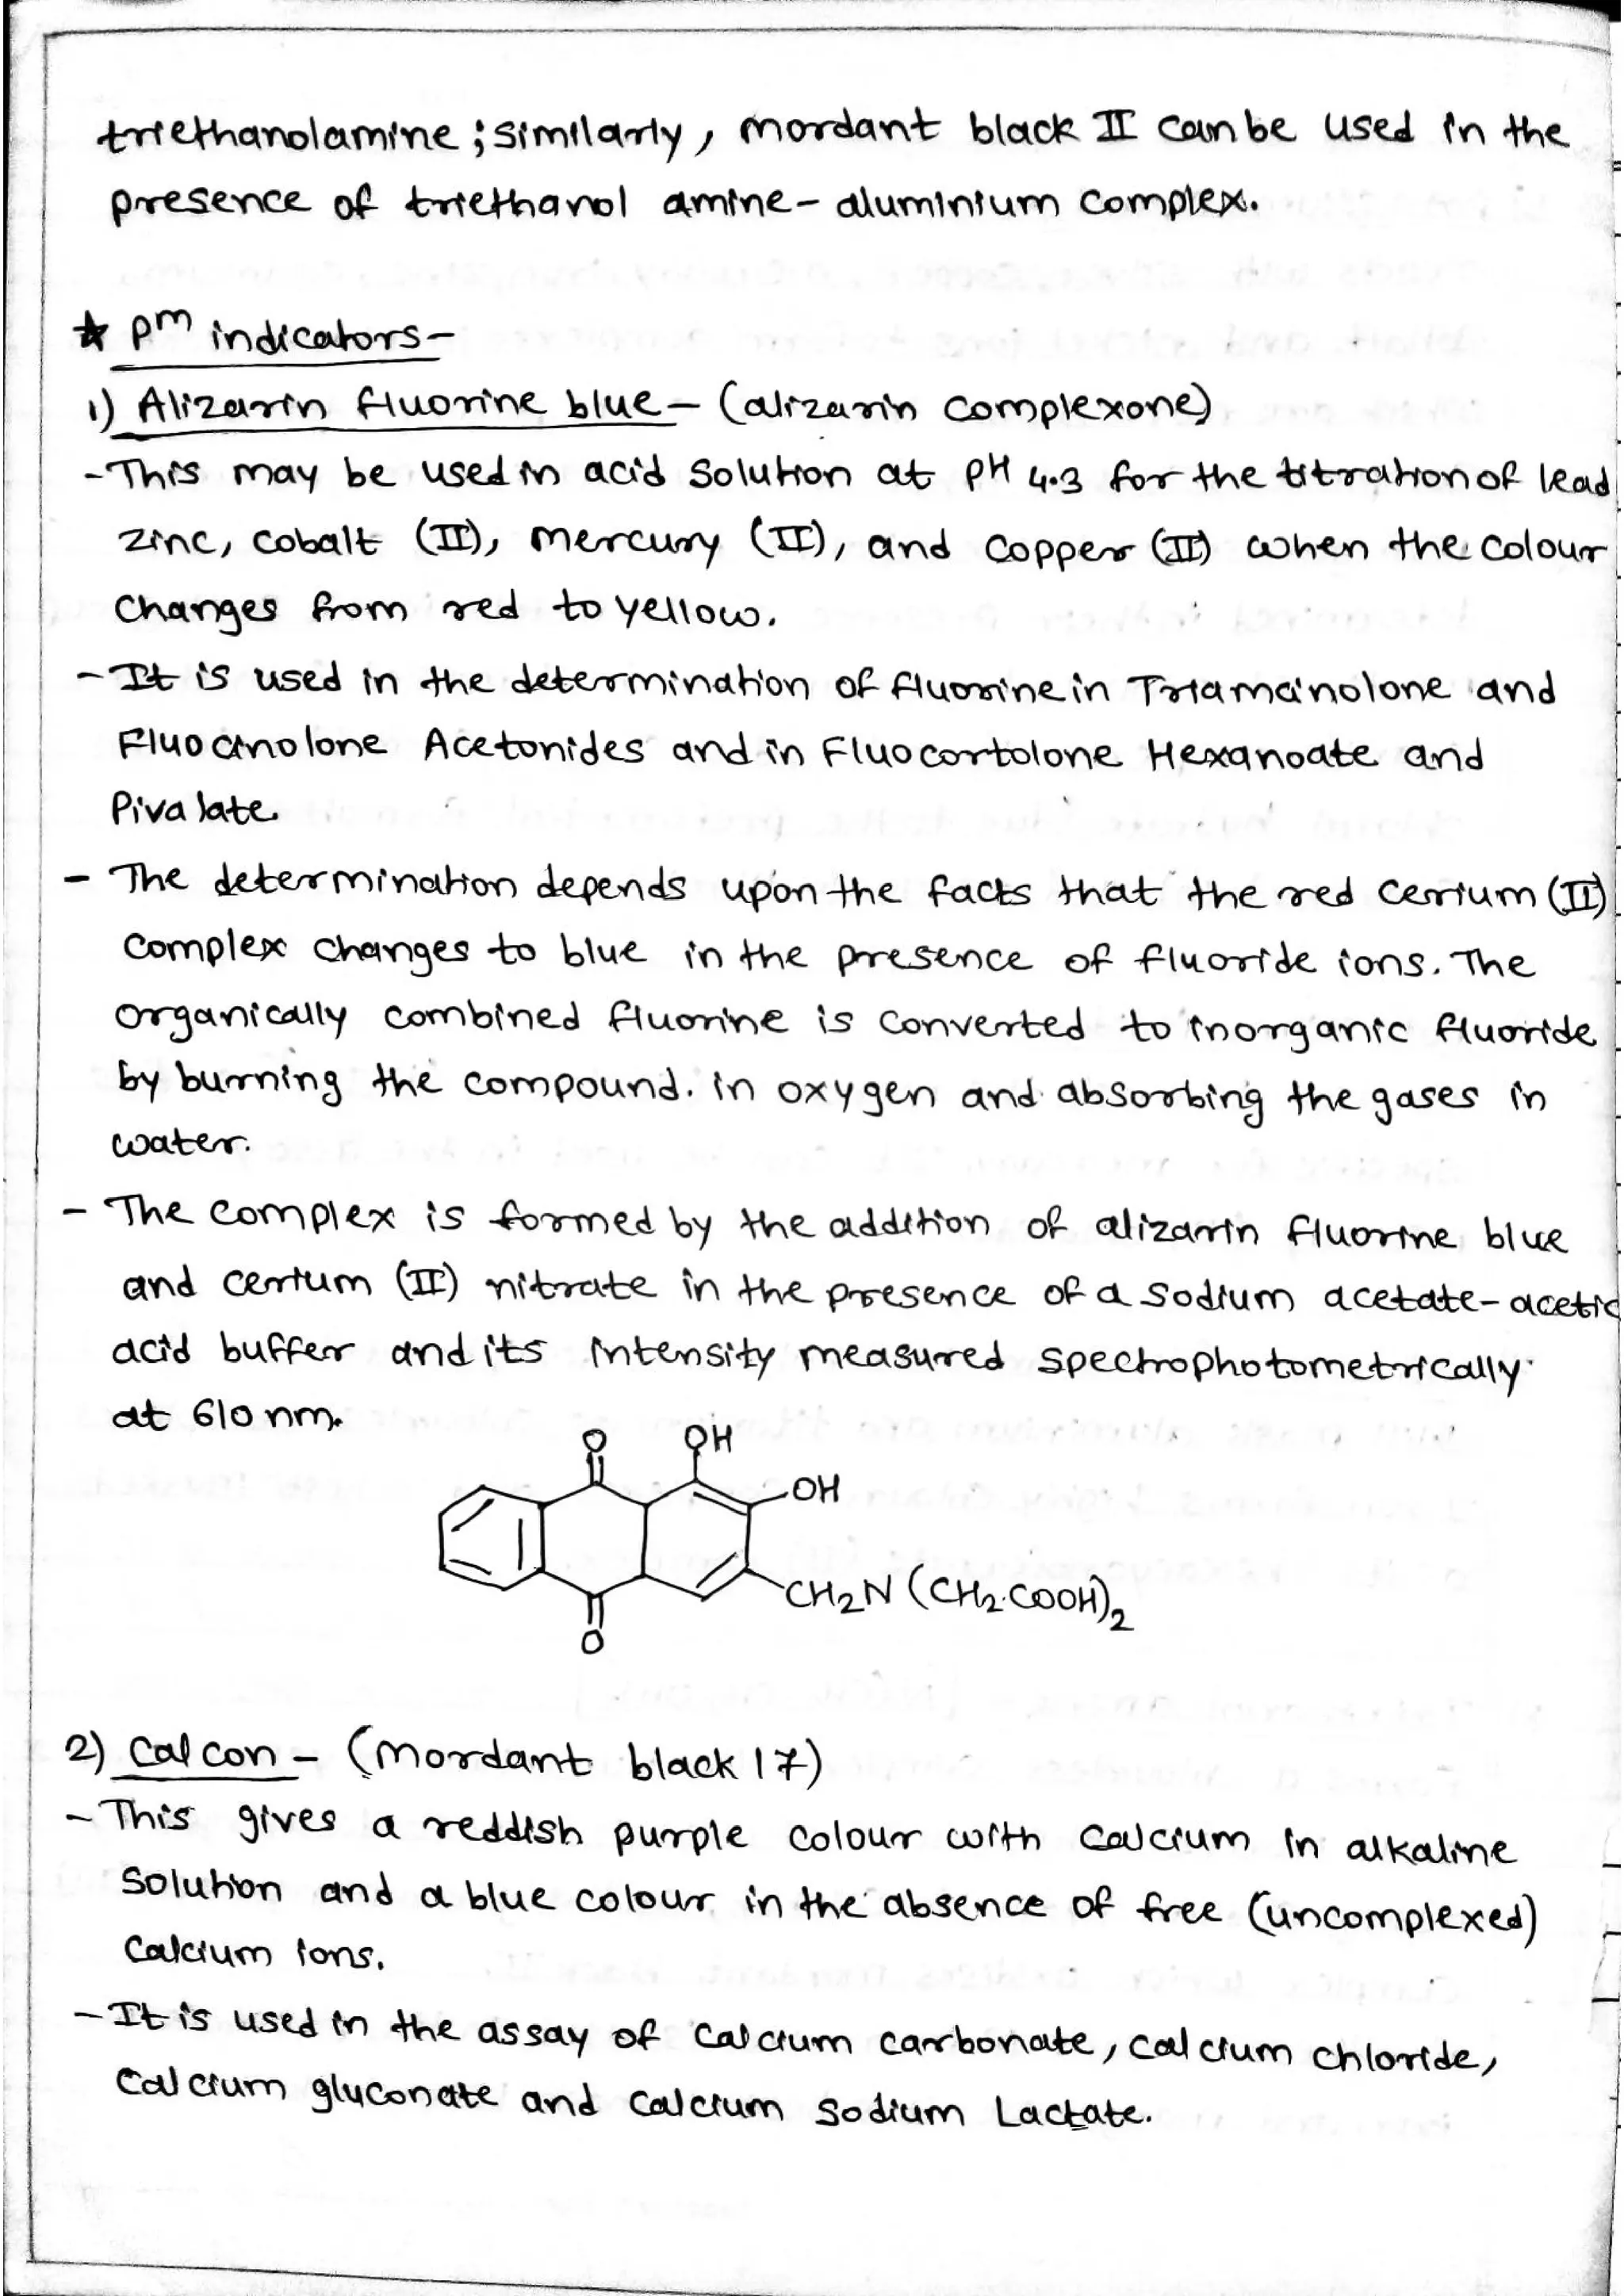 triethanolamine; similarly, mordant black II can be used in the
presence of triethanol amine - aluminium complex.
★ pm indicators-
1) Alizarin fluorine blue - (alizarin complexone)
- This may be used in acid solution at pH 4.3 for the titration of lead
zinc, cobalt (II), mercury (II), and copper (II) when the colour
changes from red to yellow.
- It is used in the determination of fluorine in Triamcinolone and
Fluocinolone Acetonides and in Fluocortolone Hexanoate and
Pivalate.
- The determination depends upon the facts that the red cerium (II)
complex changes to blue in the presence of fluoride ions. The
organically combined fluorine is converted to inorganic fluoride
by burning the compound. in oxygen and absorbing the gases in
water.
- The complex is formed by the addition of alizarin fluorine blue
and cerium (II) nitrate in the presence of a sodium acetate-acetic
acid buffer and its intensity measured spectrophotometrically
at 610 nm.
O OH
OH
CH2N (CH2.COOH)2
O
2) Calcon - (Mordant black 17)
- This gives a reddish purple colour with calcium in alkaline
solution and a blue colour in the absence of free (uncomplexed)
calcium ions.
- It is used in the assay of calcium carbonate, calcium chloride,
calcium gluconate and calcium sodium Lactate.